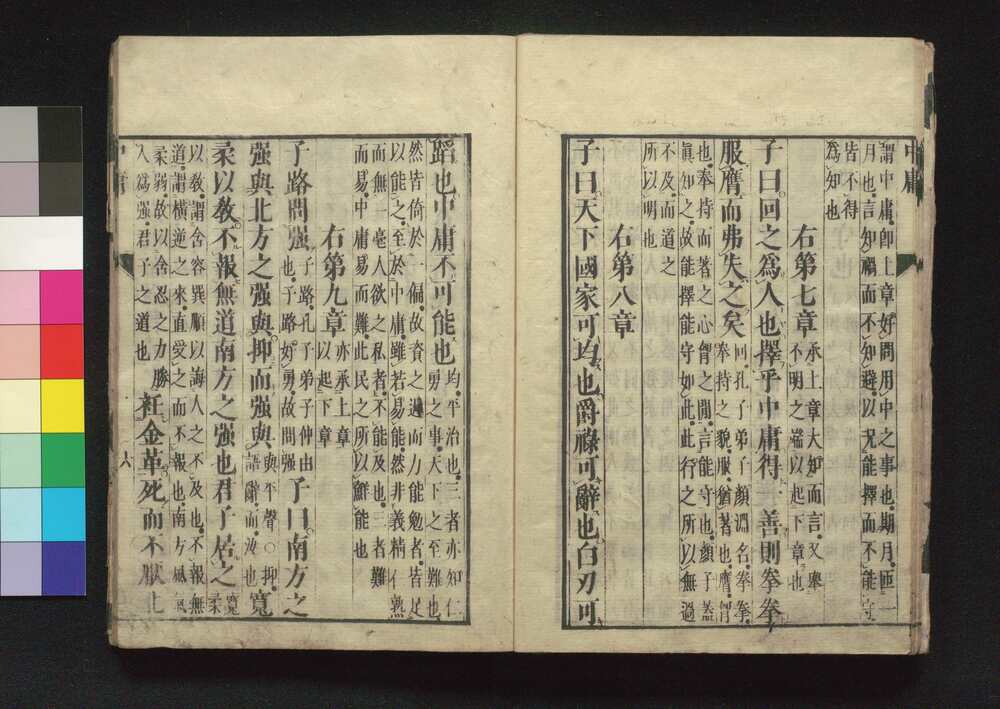 中庸
謂中庸即上章好問用中之事也期月匝一
月也言知禍而不知避以况能擇而不能守
皆不得
為知也
右第七章
承上章大知而言又舉
不明之端以起下章也
子曰回之為人也擇乎中庸得一善則拳拳
服膺而弗失之矣
回孔子弟子顏淵名拳拳
奉持之貌服猶著也膺胷
也奉持而著之心胷之間言能守也顏子蓋
眞知之故能擇能守如此此行之所以無過
不及而道之
所以明也
右第八章
子曰天下國家可均也爵祿可辭也白刃可
蹈也中庸不可能也
均平治也三者亦知仁
勇之事天下之至難也
然皆倚於一偏故資之近而力能勉者皆足
以能之至於中庸雖若易能然非義精仁熟
而無一毫人欲之私者不能及也三者難
而易中庸易而難此民之所以鮮能也
右第九章
亦承上章
以起下章
子路問强
子路孔子弟子仲由
也子路好勇故問强
子曰南方之
强與北方之强與抑而强與
與平聲○抑
語辭而汝也
寬
柔以教不報無道南方之强也君子居之
寬柔
以教謂含容巽順以誨人之不及也不報無
道謂横逆之來直受之而不報也南方風氣
柔弱故以含忍之力勝
人爲强君子之道也
衽金革死而不厭北
中庸
六